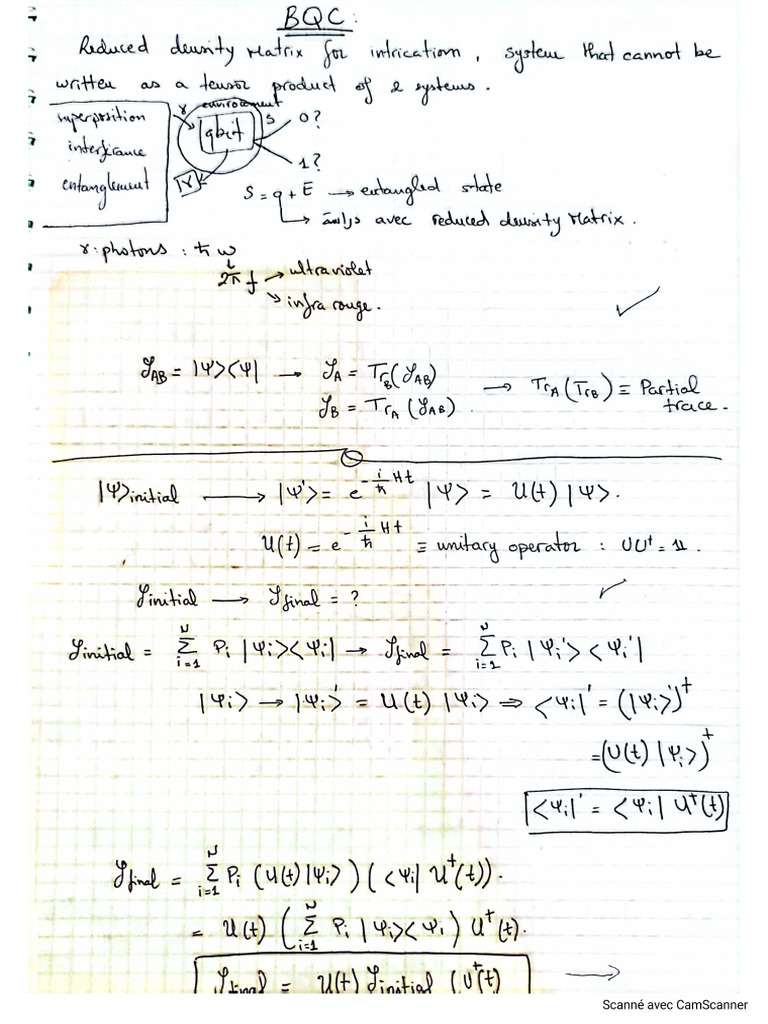 BQC:
Reduced density Matrix for intrication, system that cannot be
written as a tensor product of 2 systems.
superposition
interfirance
entanglement
γ environment
qbit
S
0?
1?
γ
S = q + E → entangled state
→ دراسة avec reduced density Matrix.
γ: photons : ħ ω
2π f → ultraviolet
→ infra rouge.
ρ_AB = |Ψ><Ψ| → ρ_A = Tr_B(ρ_AB)
ρ_B = Tr_A (ρ_AB).
→ Tr_A (Tr_B) ≡ Partial
trace.
|Ψ>initial → |Ψ'> = e^{-i/ħ Ht} |Ψ> = U(t) |Ψ>.
U(t) = e^{-i/ħ Ht} ≡ unitary operator : UU† = 1.
ρinitial → ρfinal = ?
ρinitial = Σ_{i=1}^{N} Pi |Ψi><Ψi| → ρfinal = Σ_{i=1}^{N} Pi |Ψi'> <Ψi'|
|Ψi> → |Ψi>' = U(t) |Ψi> ⇒ <Ψi|' = (|Ψi>')†
= (U(t) |Ψi>)†
<Ψi|' = <Ψi| U†(t)
ρfinal = Σ_{i=1}^{N} Pi (U(t)|Ψi>) (<Ψi| U†(t)).
= U(t) (Σ_{i=1}^{N} Pi |Ψi><Ψi) U†(t).
ρfinal = U(t) ρinitial (U†(t) →
Scanné avec CamScanner